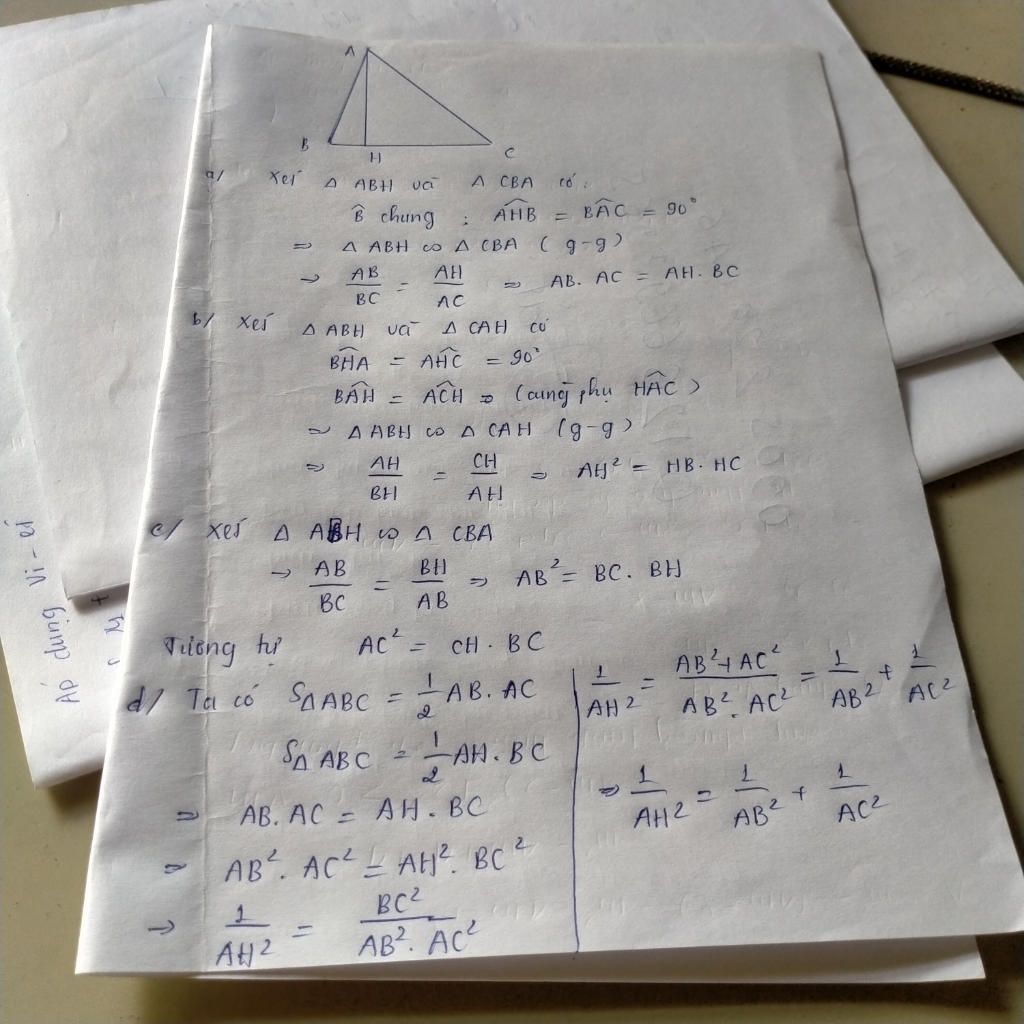 A
B
H
C
a/ Xét Δ ABH và Δ CBA có:
B̂ chung ; AĤB = BÂC = 90°
⇒ Δ ABH ∽ Δ CBA (g-g)
→ AB/BC = AH/AC ⇒ AB. AC = AH. BC
b/ Xét Δ ABH và Δ CAH có
BĤA = AĤC = 90°
BÂH = AĈH ⇒ (cùng phụ HÂC)
⇒ Δ ABH ∽ Δ CAH (g-g)
⇒ AH/BH = CH/AH ⇒ AH² = HB. HC
c/ Xét Δ ABH ∽ Δ CBA
→ AB/BC = BH/AB ⇒ AB² = BC. BH
Tương tự AC² = CH. BC
d/ Ta có SΔABC = 1/2 AB. AC
SΔ ABC = 1/2 AH. BC
⇒ AB. AC = AH. BC
⇒ AB². AC² = AH². BC²
→ 1/AH² = BC²/AB². AC²
1/AH² = AB²+AC²/AB². AC² = 1/AB² + 1/AC²
⇒ 1/AH² = 1/AB² + 1/AC²
Áp dụng Vi-ét